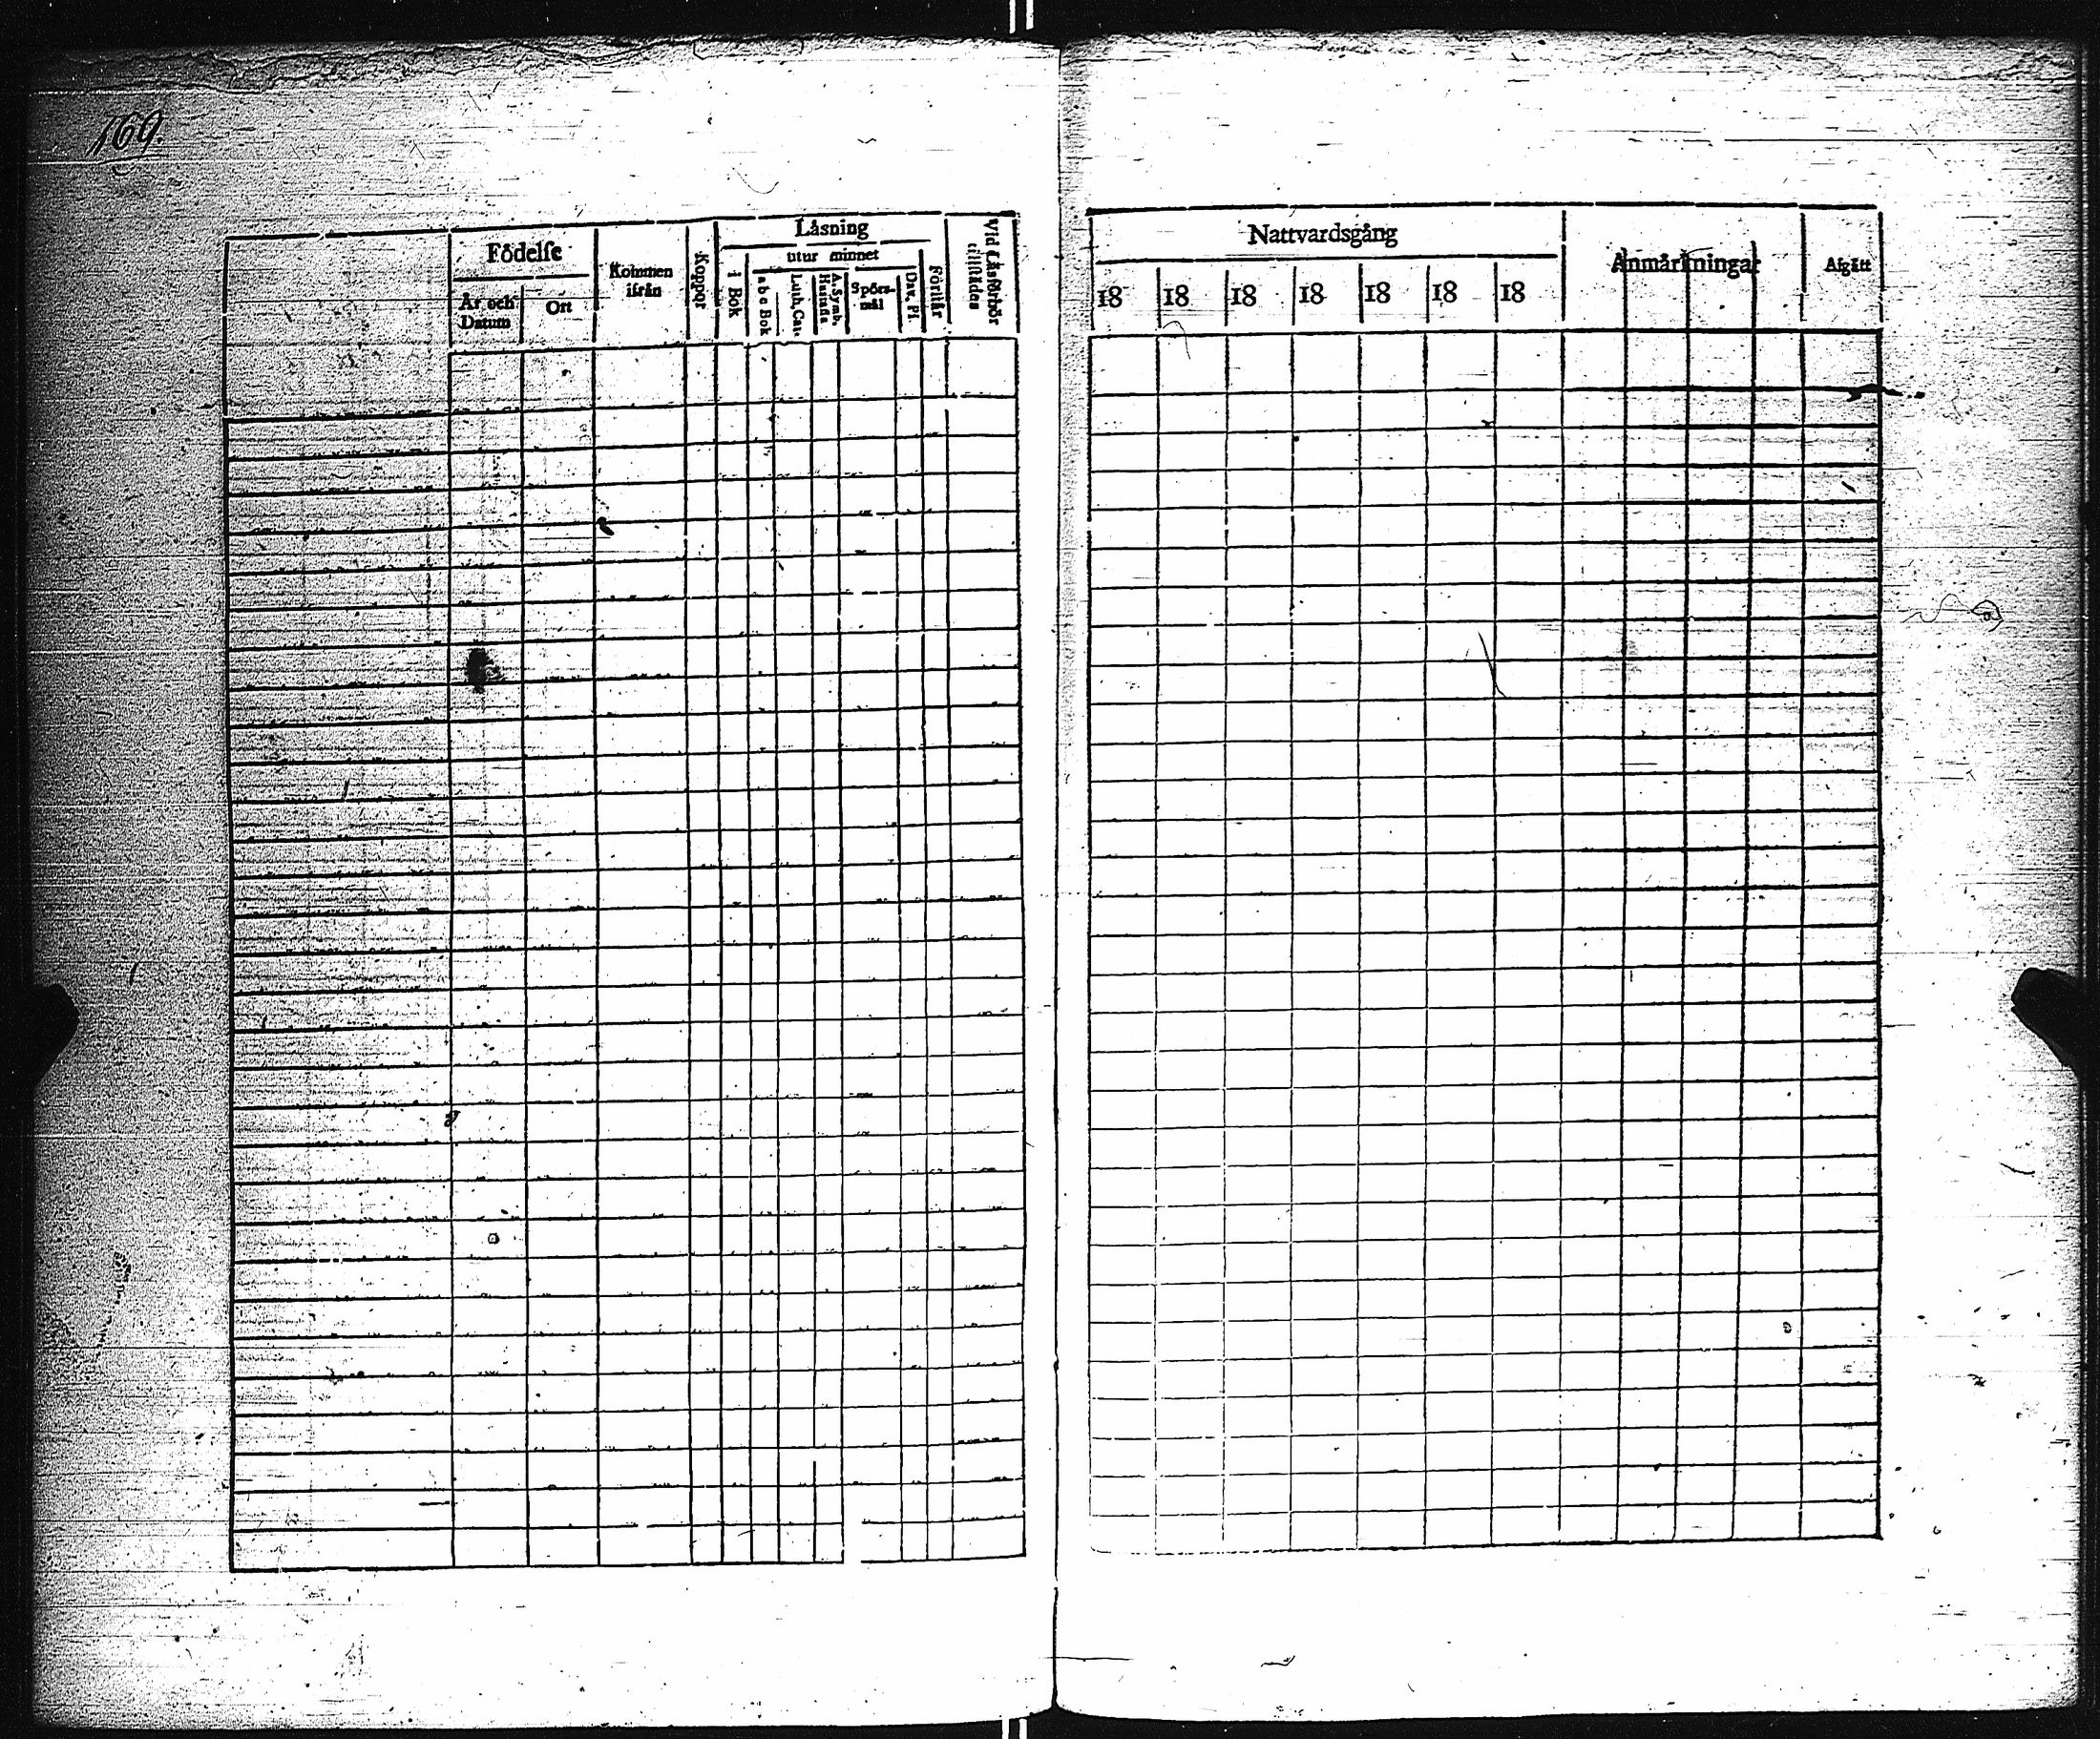 169.
Födelse
År och Datum
Ort
Kommen ifrån
Koppor
Läsning
i Bok
utur minnet
a b c Bok
Luth. Cat.
A. Symb. Hustafla
Spörsmål
Dav. Ps.
Förstår
Vid Läsförhör tillstädes
Nattvardsgång
18 18 18 18 18 18 18
Anmärkningar
Afgått